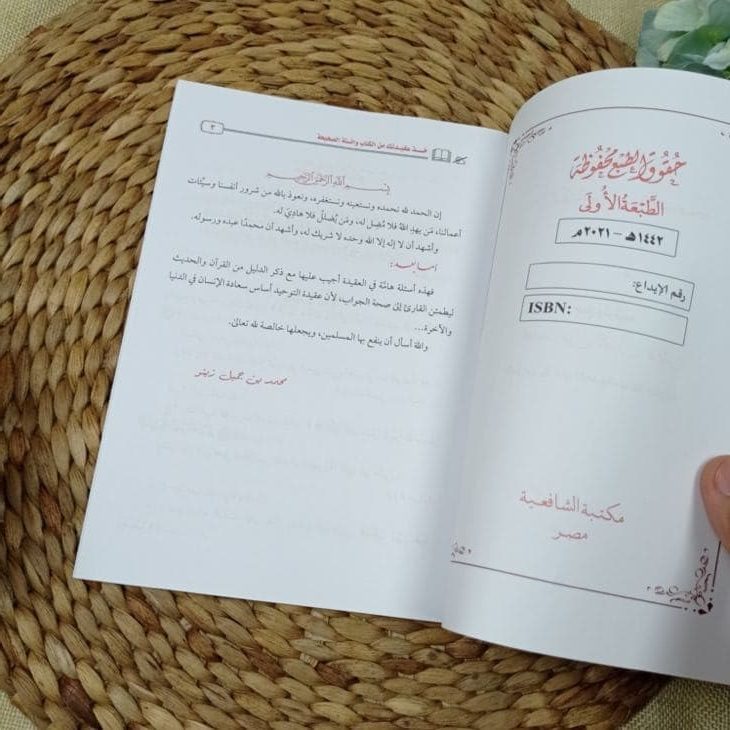 حقوق الطبع محفوظة
الطبعة الأولى
١٤٤٢هـ - ٢٠٢١م
رقم الإيداع:
ISBN:
مكتبة الشافعية
مصر
خذ عقيدتك من الكتاب والسنة الصحيحة
٣
بسم الله الرحمن الرحيم
إن الحمد لله نحمده ونستعينه ونستغفره، ونعوذ بالله من شرور أنفسنا وسيئات
أعمالنا، مَن يهدِ اللهُ فلا مُضِل له، ومَن يُضلل فلا هادِيَ له.
وأشهد أن لا إله إلا الله وحده لا شريك له، وأشهد أن محمدًا عبده ورسوله.
أما بعد:
فهذه أسئلة هامَّة في العقيدة أجيب عليها مع ذكر الدليل من القرآن والحديث
ليطمئن القارئ إلى صحة الجواب، لأن عقيدة التوحيد أساس سعادة الإنسان في الدنيا
والآخرة...
والله أسأل أن ينفع بها المسلمين، ويجعلها خالصة لله تعالى.
محمد بن جميل زينو